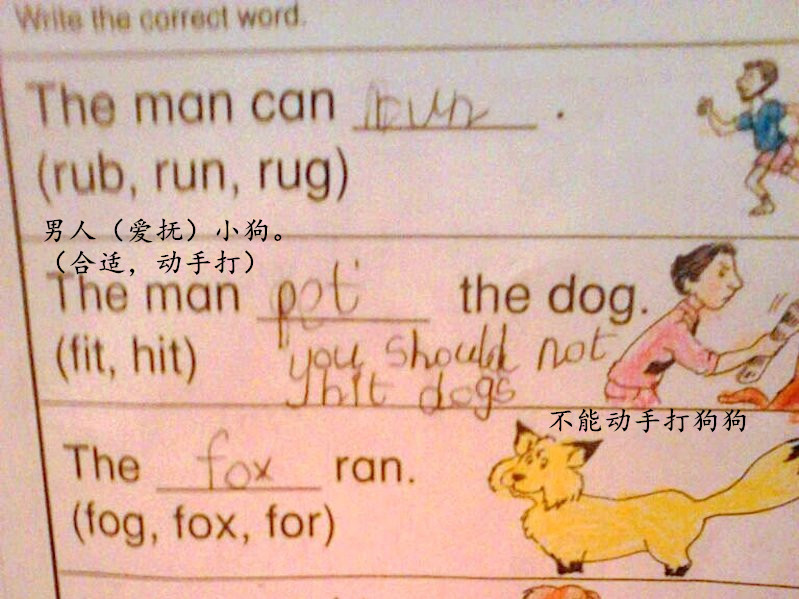 Write the correct word.
The man can run .
(rub, run, rug)
男人（爱抚）小狗。
（合适，动手打）
The man pet the dog.
(fit, hit)
you should not
hit dogs
不能动手打狗狗
The fox ran.
(fog, fox, for)